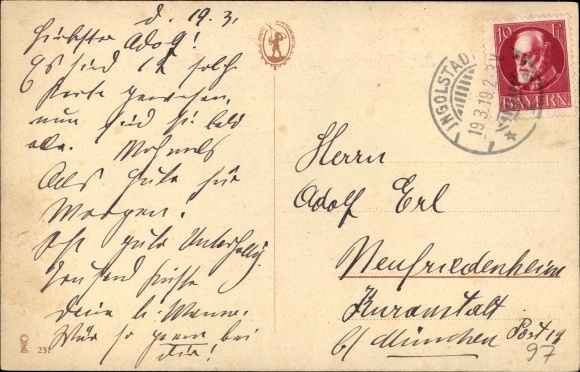 d. 19.3.
Liebster Adolf!
Es sind 12 solch
Karte gewesen,
nun sind sie bald
alle.
Alles Gute für
Morgen.
gute Unterhaltg.
Tausend Küsse
Deine
Wär so gern bei
Dir!
231
10 Pf
BAYERN
INGOLSTADT
19.3.19.2-3N
Herrn
Adolf Erl
Neufriedenheim
Kuranstalt
b/ München Post 19
97